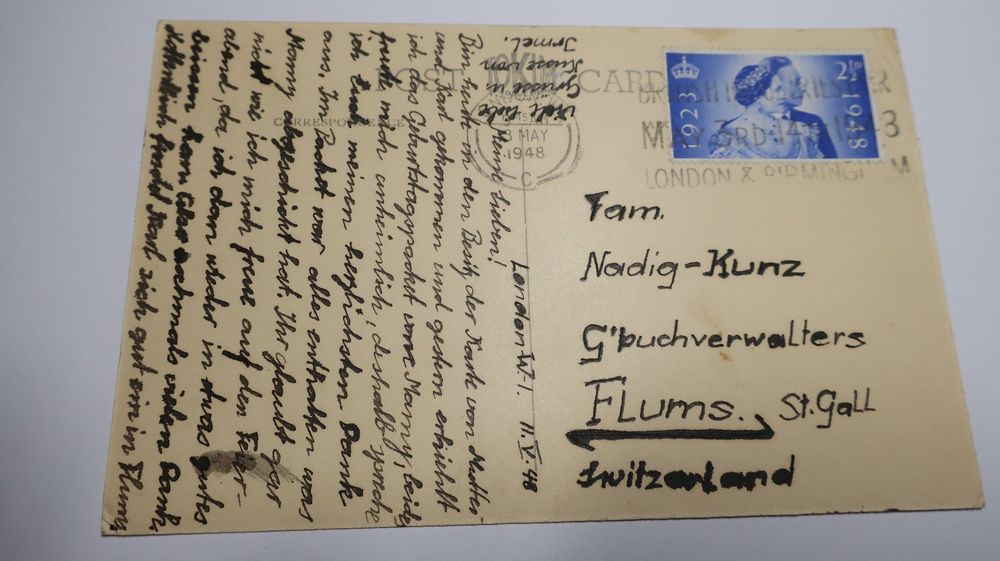 POST CARD
CORRESPONDENCE
TOKIN
8 MAY
1948
C
1923
2½D
1948
BRITISH INDUSTRIES FAIR
MAY 3RD-14TH 1948
LONDON & BIRMINGHAM
London W.1. 11.V.48
Meine Lieben!
Bin heute in den Besitz der Karte von Mutter
und Karl gekommen und gestern erhielt
ich das Geburtstagspacket von Mammy, beide
freute mich unheimlich, deshalb spreche
ich Euch meinen herzlichsten Dank
aus. Im Packet war alles enthalten was
Mammy abgeschickt hat. Ihr glaubt gar
nicht wie ich mich freue auf den Feier-
abend, da ich dann wieder in etwas gutes
beissen kann. Also nochmals vielen Dank
Hoffentlich findet Karl sich gut ein in Flums
viele liebe
Grüsse u.
Küsse von
Irmel.
Fam.
Nadig-Kunz
G'buchverwalters
Flums. St. Gall
Switzerland